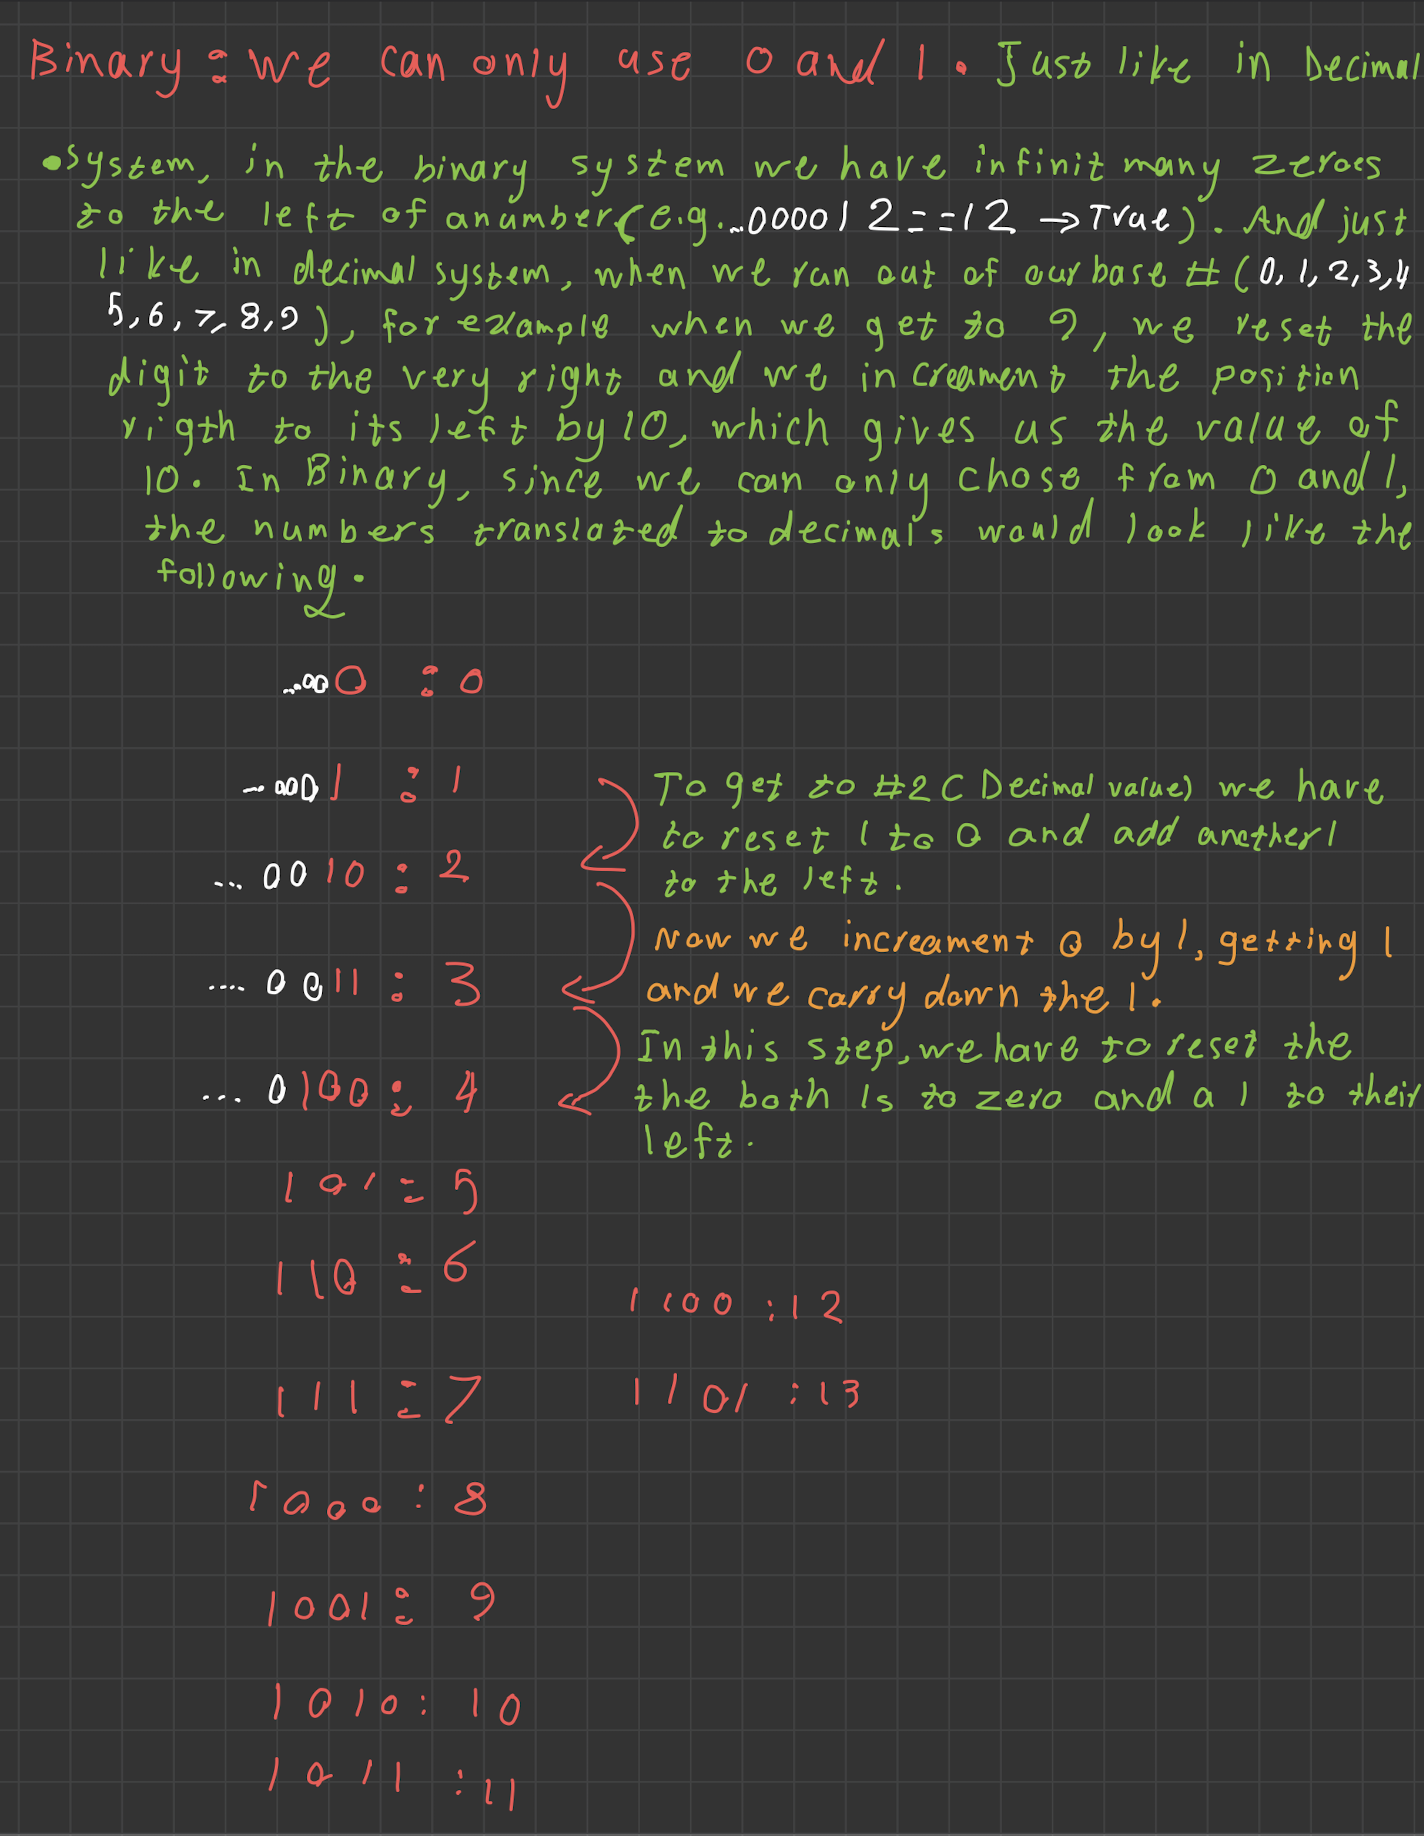 Binary : we can only use 0 and 1. Just like in Decimal
•system, in the binary system we have infinit many zeroes
to the left of a number (e.g. ...000012==12 → True). And just
like in decimal system, when we run out of our base # (0,1,2,3,4
5,6,7,8,9), for example when we get to 9, we reset the
digit to the very right and we increament the position
rigth to its left by 10, which gives us the value of
10. In Binary, since we can only chose from 0 and 1,
the numbers translated to decimal's would look like the
following.
...000 : 0
...0001 : 1
To get to #2 ( Decimal value) we have
to reset 1 to 0 and add another 1
to the left.
...0010 : 2
Now we increament 0 by 1, getting 1
and we carry down the 1.
....0011 : 3
In this step, we have to reset the
the both 1s to zero and a 1 to their
left.
...0100 : 4
101 : 5
110 : 6
1100 : 12
111 : 7
1101 : 13
1000 : 8
1001 : 9
1010 : 10
1011 : 11